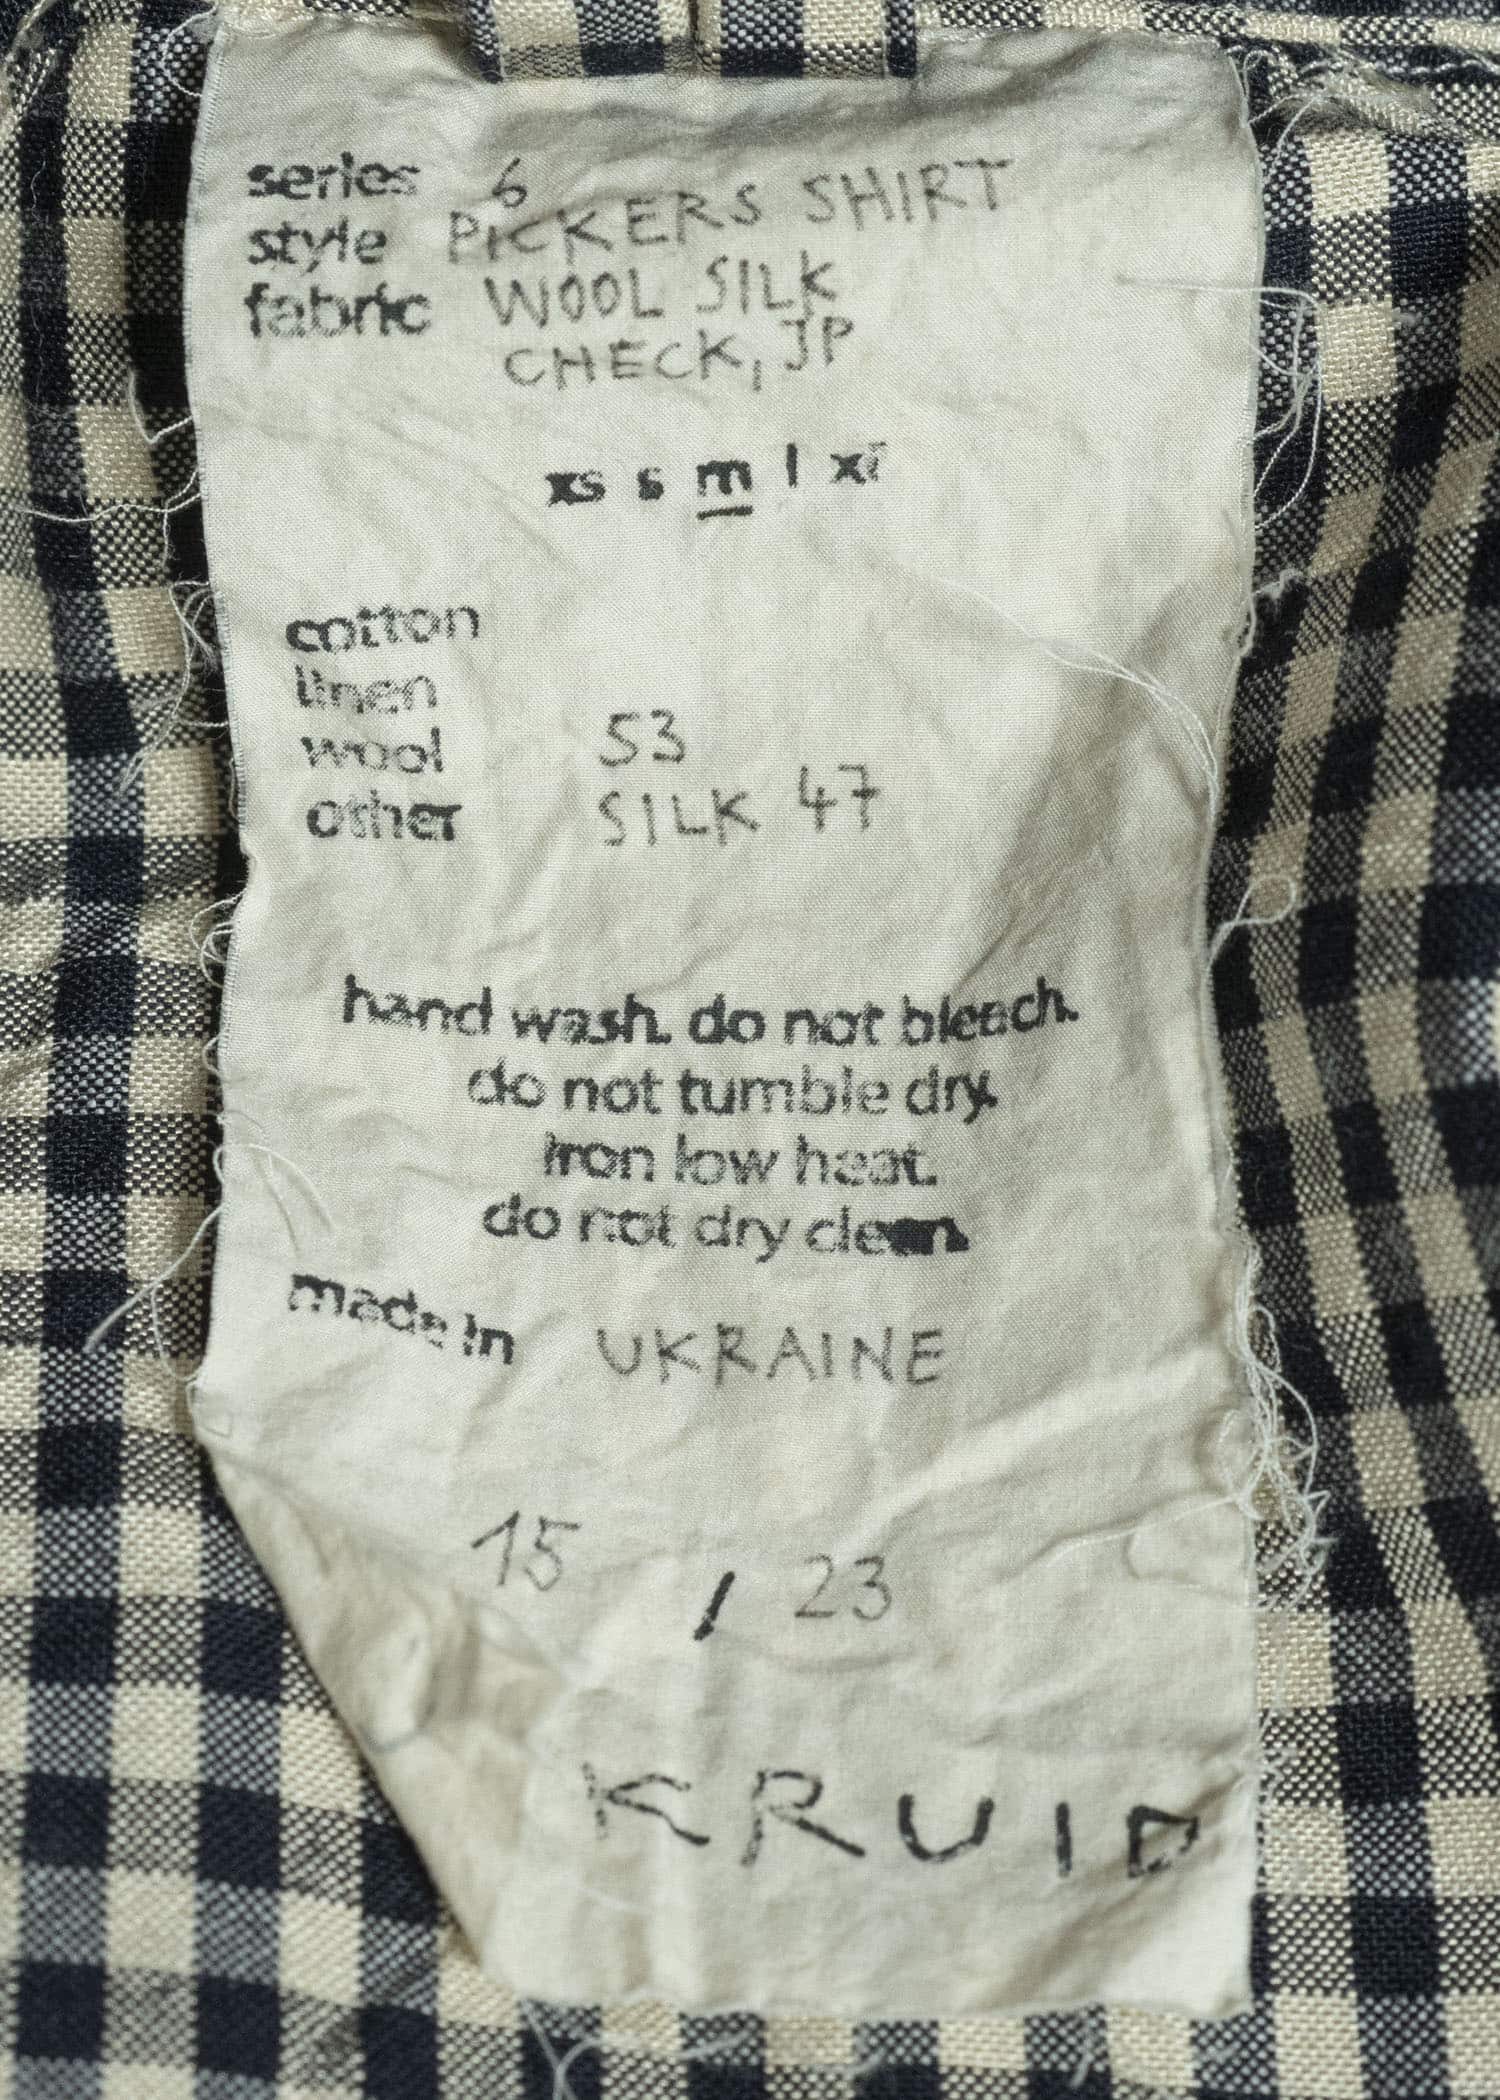 series 6
style PICKERS SHIRT
fabric WOOL SILK
CHECK, JP
xs s m l xl
cotton
linen
wool 53
other SILK 47
hand wash. do not bleach.
do not tumble dry.
iron low heat.
do not dry clean.
made in UKRAINE
15 / 23
KRUID